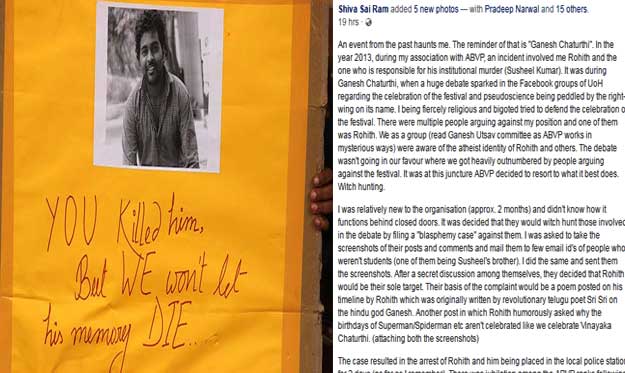 YOU Killed him,
But WE won't let
his memory DIE...
Shiva Sai Ram added 5 new photos — with Pradeep Narwal and 15 others.
19 hrs ·
An event from the past haunts me. The reminder of that is "Ganesh Chaturthi". In the
year 2013, during my association with ABVP, an incident involved me Rohith and the
one who is responsible for his institutional murder (Susheel Kumar). It was during
Ganesh Chaturthi, when a huge debate sparked in the Facebook groups of UoH
regarding the celebration of the festival and pseudoscience being peddled by the right-
wing on its name. I being fiercely religious and bigoted tried to defend the celebration o
the festival. There were multiple people arguing against my position and one of them
was Rohith. We as a group (read Ganesh Utsav committee as ABVP works in
mysterious ways) were aware of the atheist identity of Rohith and others. The debate
wasn't going in our favour where we got heavily outnumbered by people arguing
against the festival. It was at this juncture ABVP decided to resort to what it best does.
Witch hunting.
I was relatively new to the organisation (approx. 2 months) and didn't know how it
functions behind closed doors. It was decided that they would witch hunt those involved
in the debate by filing a "blasphemy case" against them. I was asked to take the
screenshots of their posts and comments and mail them to few email id's of people who
weren't students (one of them being Susheel's brother). I did the same and sent them
the screenshots. After a secret discussion among themselves, they decided that Rohith
would be their sole target. Their basis of the complaint would be a poem posted on his
timeline by Rohith which was originally written by revolutionary telugu poet Sri Sri on
the hindu god Ganesh. Another post in which Rohith humorously asked why the
birthdays of Superman/Spiderman etc aren't celebrated like we celebrate Vinayaka
Chaturthi. (attaching both the screenshots)
The case resulted in the arrest of Rohith and him being placed in the local police statio